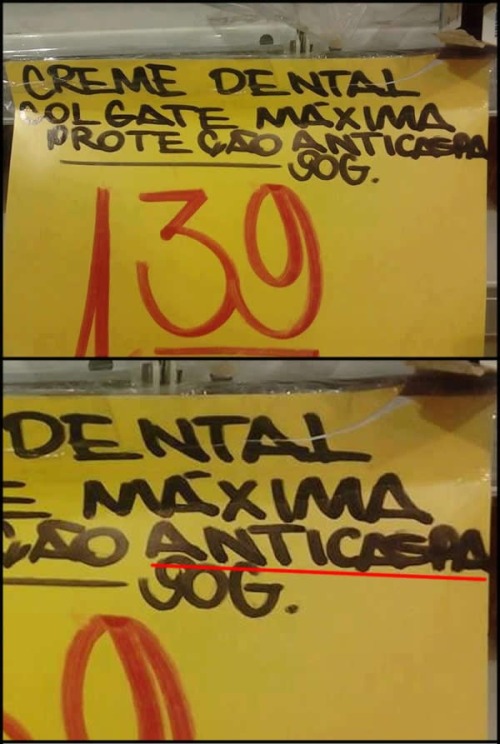 CREME DENTAL
COLGATE MÁXIMA
PROTEÇÃO ANTICASPA
90G.
1,39
DENTAL
E MÁXIMA
ÇÃO ANTICASPA
90G.
9